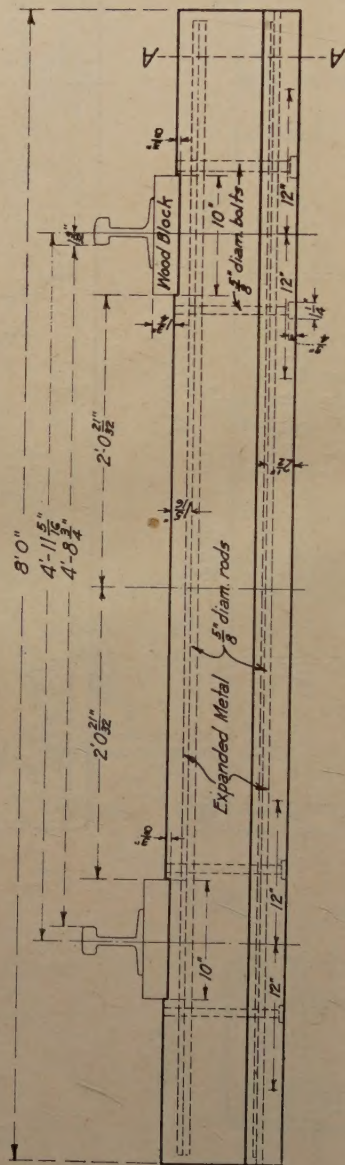 8'0"
4'-11 5/16"
4'-8 3/4"
2'0 21/32"
2'0 21/32"
Wood Block
A
3/8"
3/8"
10"
10"
5/8" diam. bolts
5/8" diam. rods
Expanded Metal
12"
12"
12"
12"
1 1/4"
3/4"
A